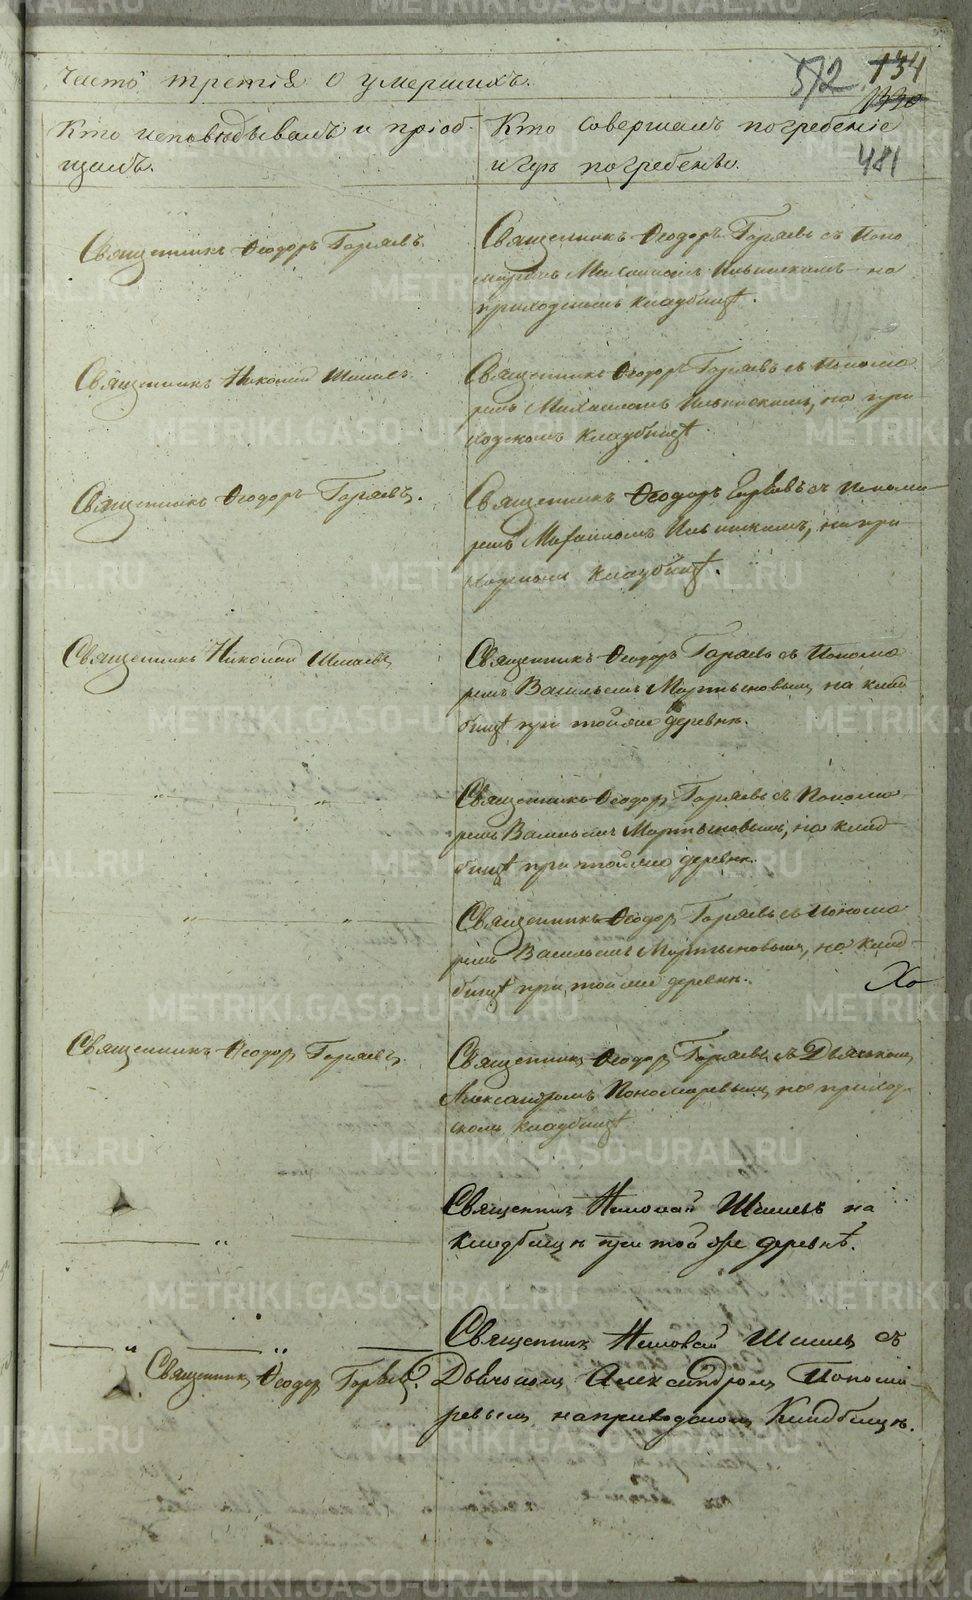 Часть третія О умершихъ.
512 134
481
Кто исповѣдывалъ и пріоб-
щалъ.
Кто совершалъ погребеніе
и гдѣ погребены.
Священникъ Ѳеодоръ Горяевъ.
Священникъ Ѳеодоръ Горяевъ съ Поно
маремъ Михаиломъ Ильинскимъ на
приходскомъ кладбищѣ.
Священникъ Николай Шишевъ.
Священникъ Ѳеодоръ Горяевъ съ Понома
ремъ Михаиломъ Ильинскимъ, на при
ходскомъ кладбищѣ
Священникъ Ѳеодоръ Горяевъ.
Священникъ Ѳеодоръ Горяевъ съ Понома
ремъ Михаиломъ Ильинскимъ, на при-
ходскомъ кладбищѣ.
Священникъ Николай Шишевъ
Священникъ Ѳеодоръ Горяевъ съ Понома
ремъ Васильемъ Мартыновымъ на клад
бищѣ при той же деревнѣ.
— " — " —
Священникъ Ѳеодоръ Горяевъ съ Понома
ремъ Васильемъ Мартыновымъ, на клад
бищѣ при той же деревнѣ.
" — " —
Священникъ Ѳеодоръ Горяевъ съ Понома
ремъ Васильемъ Мартыновымъ, на клад-
бищѣ при той же деревнѣ.
Хо
Священникъ Ѳеодоръ Горяевъ.
Священникъ Ѳеодоръ Горяевъ съ Дьячкомъ
Александромъ Пономаревымъ, на приход
скомъ кладбищѣ
Священникъ Николай Шишевъ на
— " —
кладбищѣ при той же деревнѣ.
— " — " —
Священникъ Николай Шишевъ съ
Священникъ Ѳеодоръ Горяевъ.
Дьячкомъ Александромъ Понома-
ревымъ, на приходскомъ Кладбищѣ.
METRIKI.GASO-URAL.RU